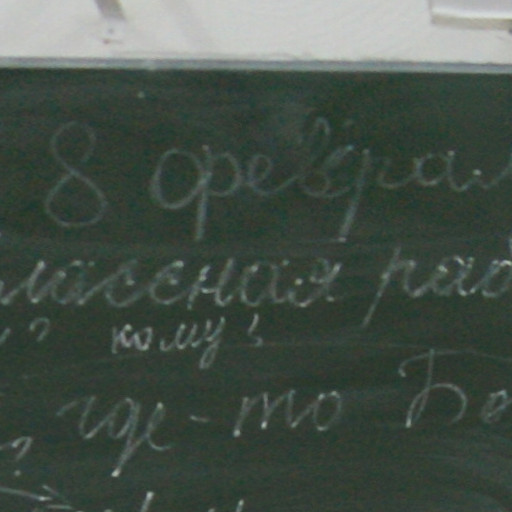 8 феврал
лассная раб
? кому?
где-то Бе
?